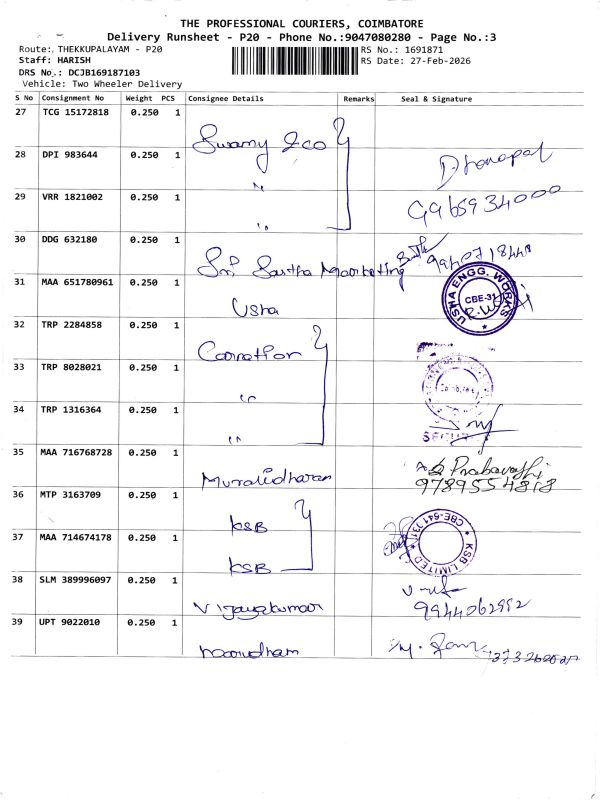 THE PROFESSIONAL COURIERS, COIMBATORE
Delivery Runsheet - P20 - Phone No.:9047080280 - Page No.:3
Route: THEKKUPALAYAM - P20
RS No.: 1691871
Staff: HARISH
RS Date: 27-Feb-2026
DRS No.: DCJB169187103
Vehicle: Two Wheeler Delivery
S No Consignment No Weight PCS Consignee Details Remarks Seal & Signature
27 TCG 15172818 0.250 1 Swamy & co
28 DPI 983644 0.250 1 " Dhanapal
29 VRR 1821002 0.250 1 " 9965934000
30 DDG 632180 0.250 1 Sri Sastha Marketing
31 MAA 651780961 0.250 1 Usha USHA ENGG. WORKS CBE-31
32 TRP 2284858 0.250 1
33 TRP 8028021 0.250 1 "
34 TRP 1316364 0.250 1 "
35 MAA 716768728 0.250 1 Muralidharan Prabavathi
9789554818
36 MTP 3163709 0.250 1 KSB
37 MAA 714674178 0.250 1 KSB KSB LIMITED CBE-641 031
38 SLM 389996097 0.250 1 Vijayakumar
9944062992
39 UPT 9022010 0.250 1